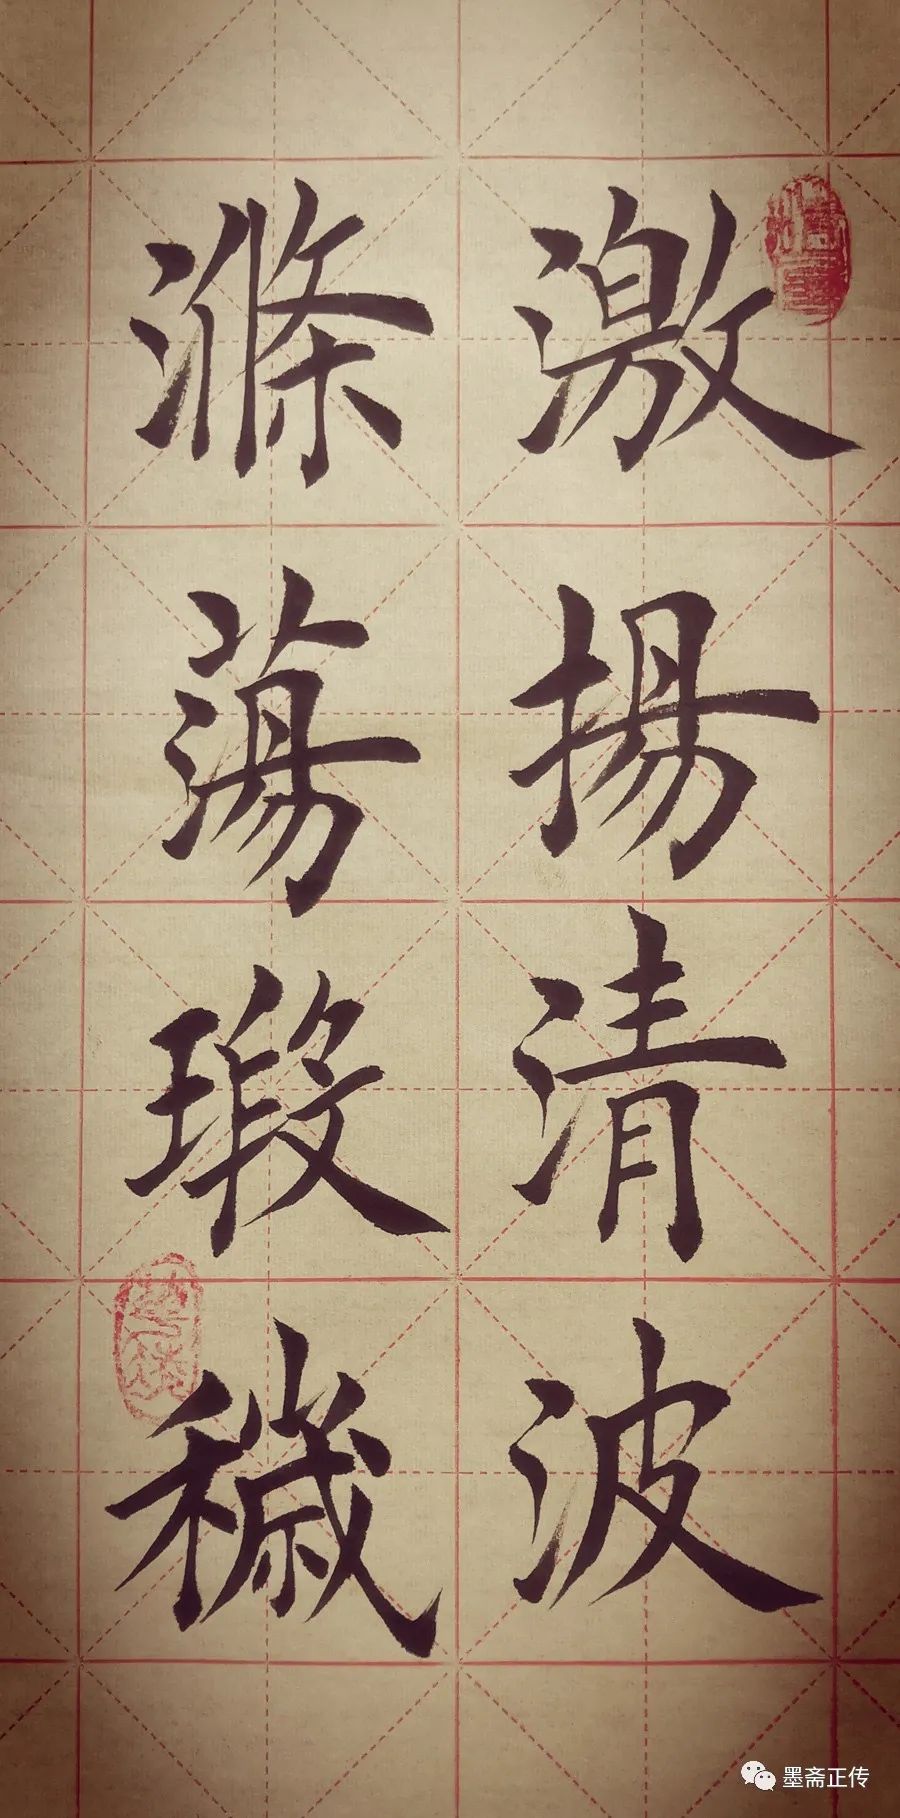 激揚清波
滌蕩瑕穢
墨斋正传